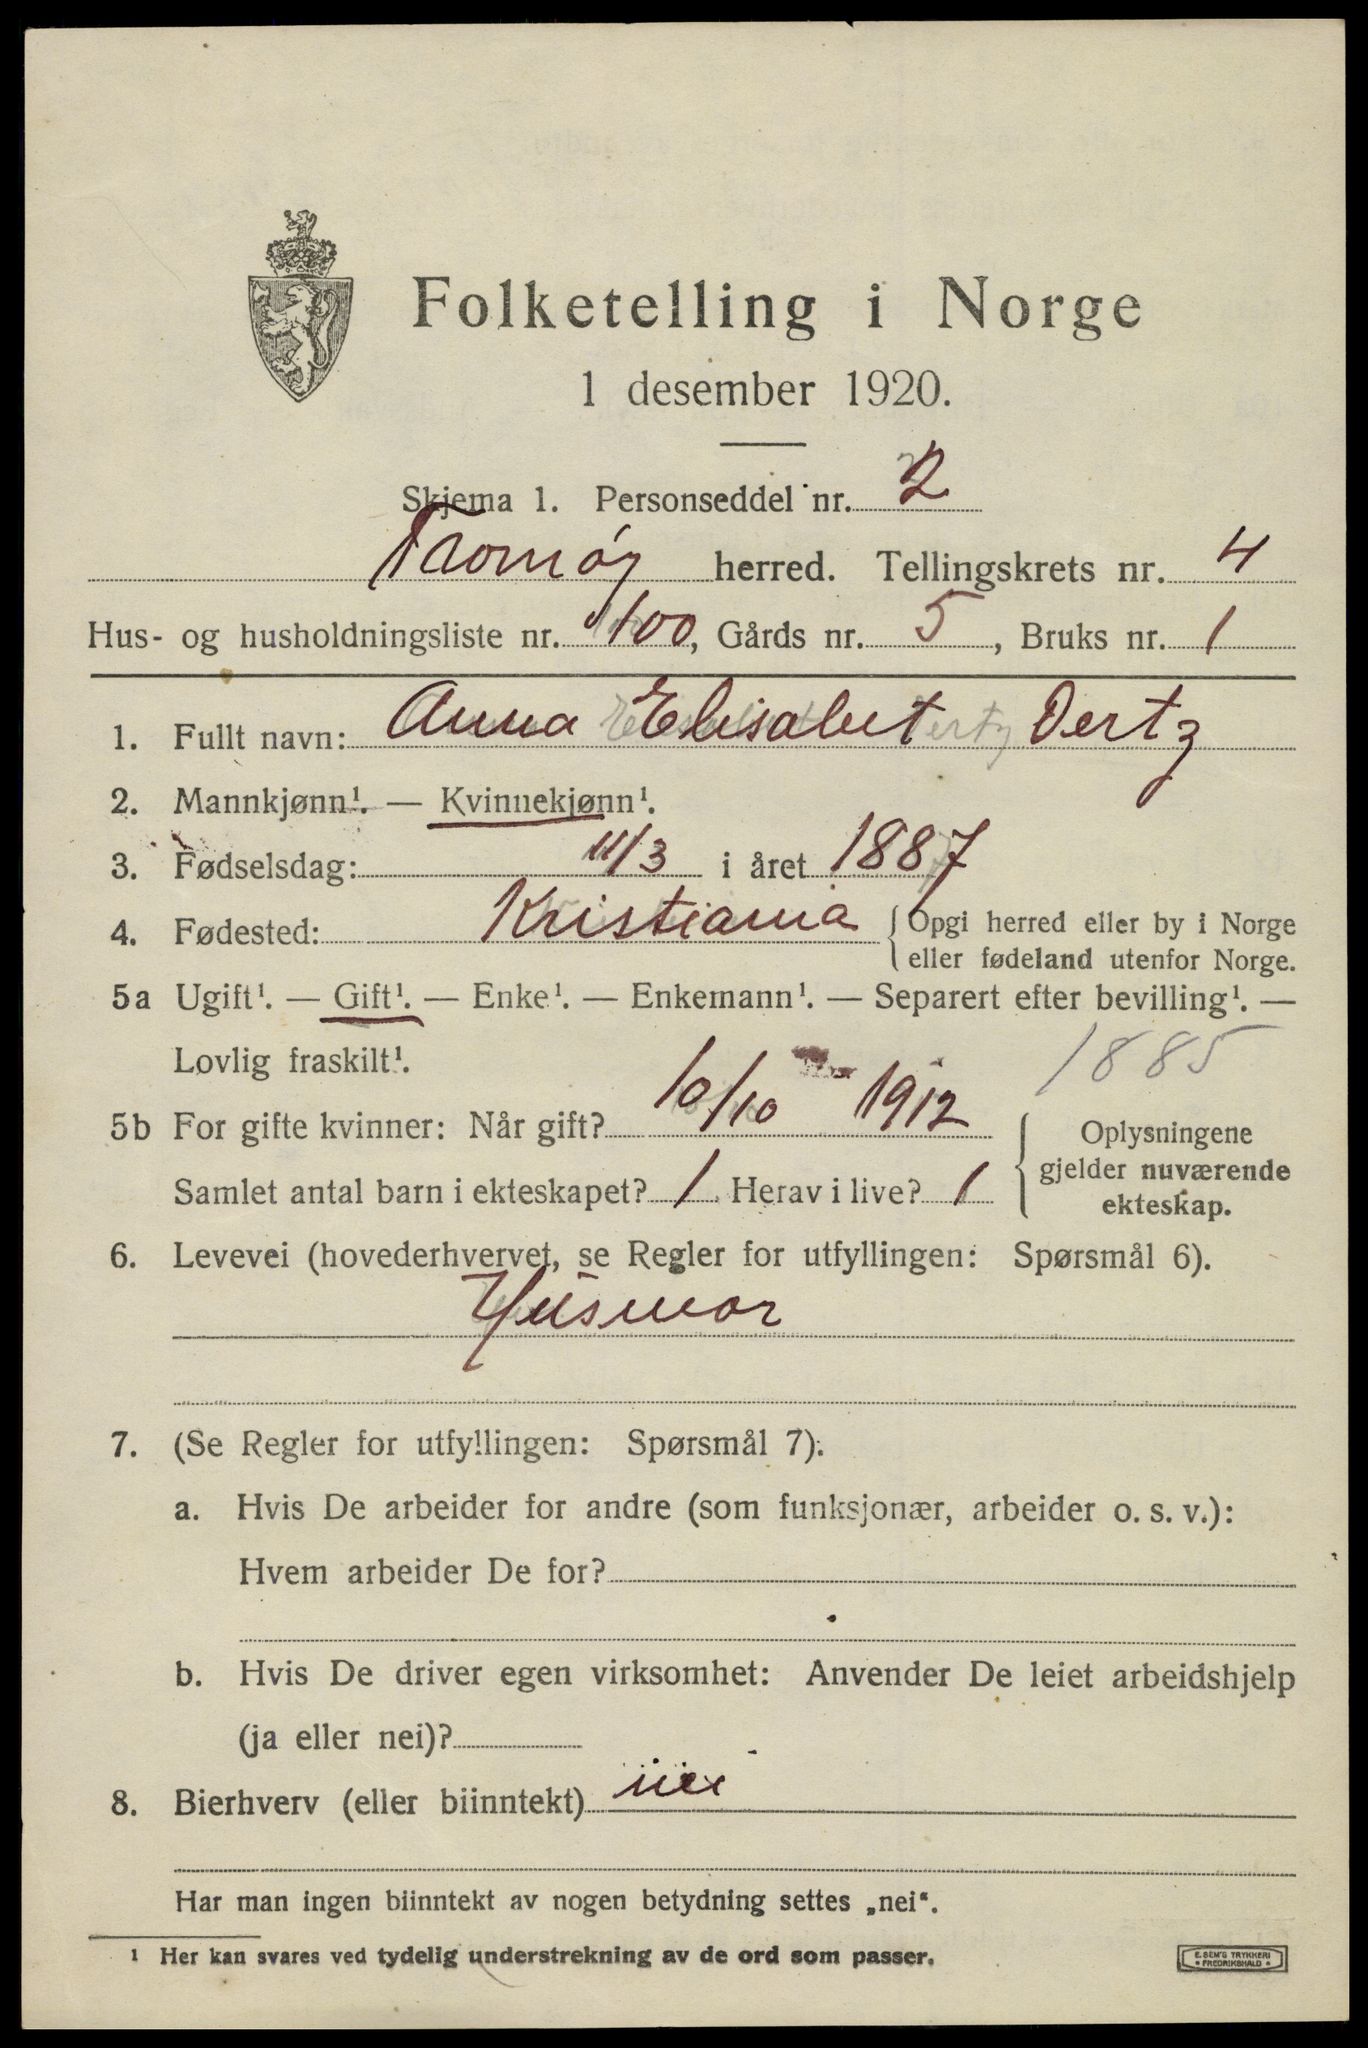 Folketelling i Norge
1 desember 1920.
Skjema 1. Personseddel nr. 2
Tromøy herred. Tellingskrets nr. 4
Hus- og husholdningsliste nr. 100, Gårds nr. 5, Bruks nr. 1
1. Fullt navn: Anna Elisabet Dertz
2. Mannkjønn¹. — Kvinnekjønn¹.
3. Fødselsdag: 11/3 i året 1887
4. Fødested: Kristiania { Opgi herred eller by i Norge
eller fødeland utenfor Norge.
5a Ugift¹. — Gift¹. — Enke¹. — Enkemann¹. — Separert efter bevilling¹. —
Lovlig fraskilt¹. 1885
5b For gifte kvinner: Når gift? 10/10 1912
Samlet antal barn i ekteskapet? 1 Herav i live? 1
Oplysningene
gjelder nuværende
ekteskap.
6. Levevei (hovederhvervet, se Regler for utfyllingen: Spørsmål 6).
Husmor
7. (Se Regler for utfyllingen: Spørsmål 7).
a. Hvis De arbeider for andre (som funksjonær, arbeider o. s. v.):
Hvem arbeider De for?
b. Hvis De driver egen virksomhet: Anvender De leiet arbeidshjelp
(ja eller nei)?
8. Bierhverv (eller biinntekt) nei
Har man ingen biinntekt av nogen betydning settes „nei“.
¹ Her kan svares ved tydelig understrekning av de ord som passer.
E. SEM'S TRYKKERI
* FREDRIKSHALD *